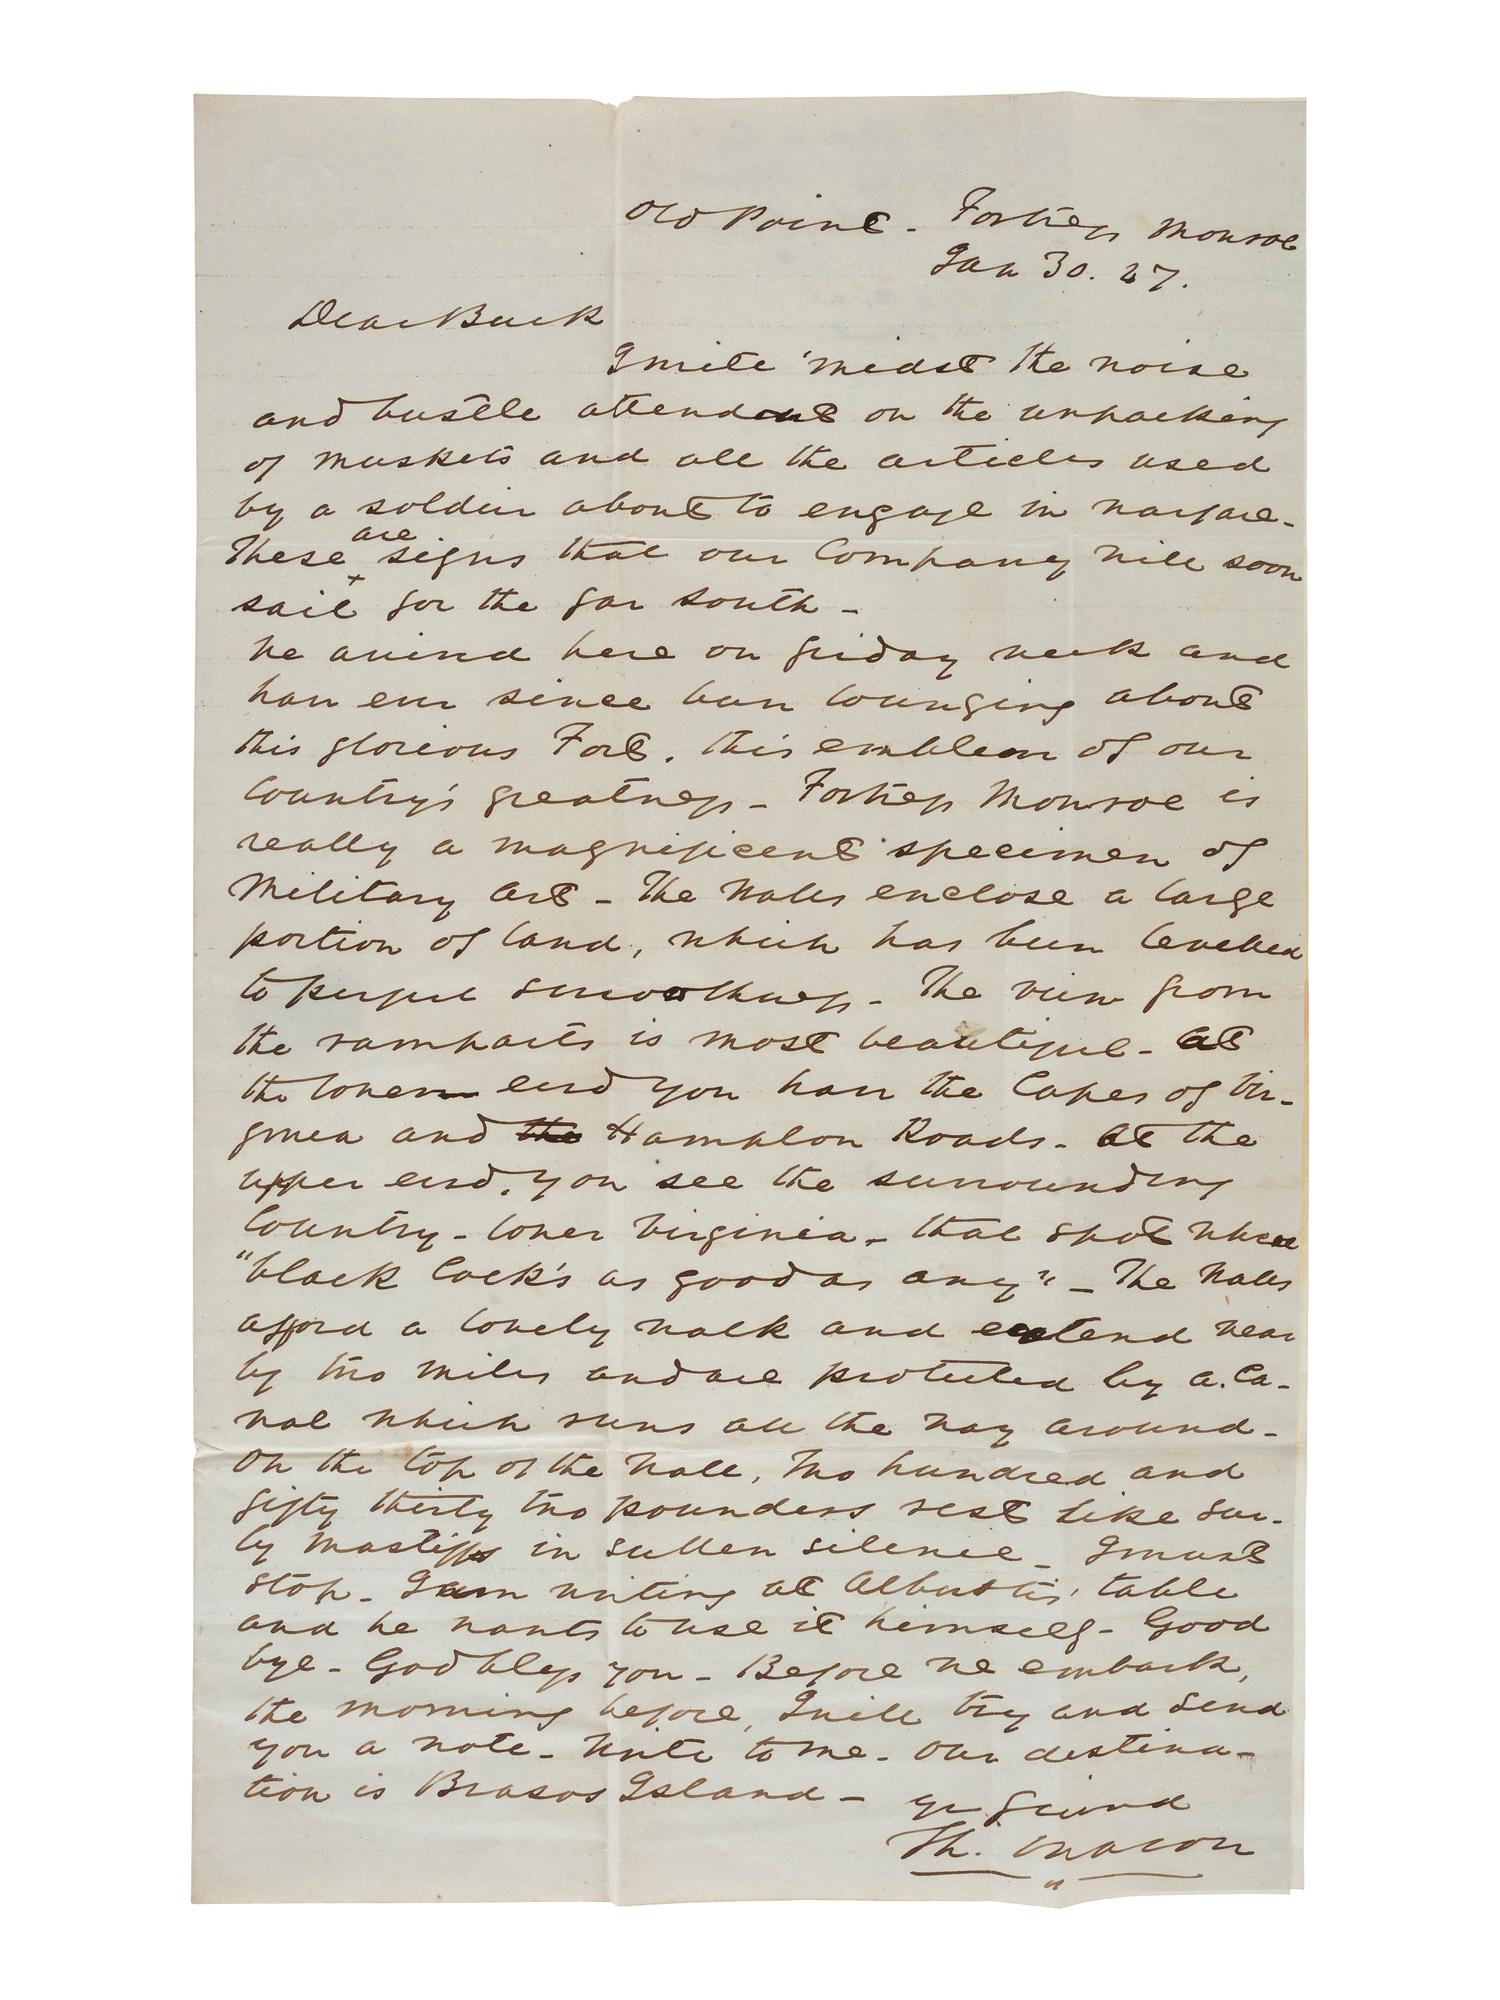 Old Point - Fortress Monroe
Jan 30. 47.
Dear Buck
I write 'midst the noise
and bustle attendant on the unpacking
of muskets and all the articles used
by a soldier about to engage in warfare -
These are signs that our Company will soon
sail for the far South -
We arrived here on friday week and
have ever since been lounging about
this glorious Fort, this emblem of our
Country's greatness - Fortress Monroe is
really a magnificent specimen of
Military Art - The Walls enclose a large
portion of land, which has been levelled
to perfect smoothness - The view from
the ramparts is most beautiful - At
the lower end you have the Capes of Vir-
ginea and the Hampton Roads - At the
upper end, you see the surrounding
Country - lower Virginia - that spot where
"black Cock's as good as any" - The Walls
afford a lovely walk and extend near
by two miles and are protected by a Ca-
nal which runs all the way around -
On the top of the Wall, two hundred and
fifty thirty two pounders rest like sur-
ly Mastiffs in sullen silence - I must
stop - I am writing at Alburtis' table
and he wants to use it himself - Good
bye - God bless you - Before we embark,
the morning before, I will try and send
you a note - Write to me - Our destina-
tion is Brasos Island -
yr friend
Th. Mason